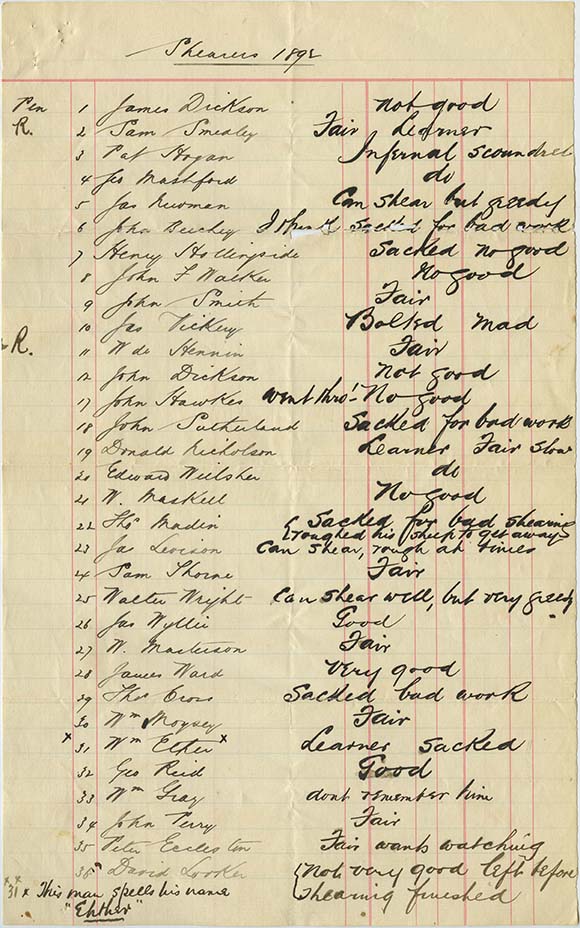 Shearers 1892
Pen 1 James Dickson Not good
R. 2 Sam Smedley Fair Learner
3 Pat Hogan Infernal scoundrel
4 Geo Mashford do
5 Jas Newman Can shear but greedy
6 John Beechey I think sacked for bad work
7 Henry Hollingside Sacked no good
8 John F Walker No good
9 John Smith Fair
10 Jas Vickery Bolted mad
R. 11 W de Hennin Fair
12 John Dickson Not good
17 John Hawkes went thro'- No good
18 John Sutherland Sacked for bad work
19 Donald Nicholson Learner Fair slow
20 Edward Wilsher do
21 W. Maskell No good
22 Thos Madin Sacked for bad shearing
roughed his sheep to get away
23 Jas Levison Can shear, rough at times
24 Sam Thorne Fair
25 Walter Wright Can shear well, but very greedy
26 Jas Wyllie Good
27 W. Masterson Fair
28 James Ward Very good
29 Thos Cross Sacked bad work
30 Wm Moysey Fair
x 31 Wm Ether x Learner sacked
32 Geo Reid Good
33 Wm Gray dont remember him
34 John Perry Fair
35 Peter Eccleston Fair wants watching
36 David Looker Not very good left before
shearing finished
x x
31 x This man spells his name
"Ehther"